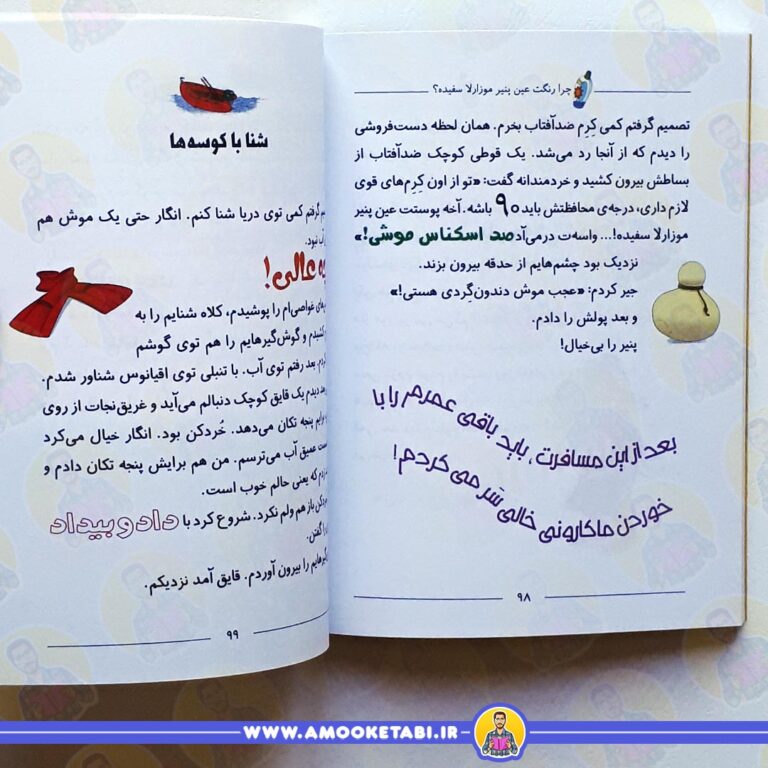 چرا رنگت عین پنیر موزارلا سفیده؟
تصمیم گرفتم کمی کِرِم ضدآفتاب بخرم. همان لحظه دست‌فروشی
را دیدم که از آنجا رد می‌شد. یک قوطی کوچک ضدآفتاب از
بساطش بیرون کشید و خردمندانه گفت: «تو از اون کِرِم‌های قوی
لازم داری، درجه‌ی محافظتش باید ۹۰ باشه. آخه پوستت عین پنیر
موزارلا سفیده!... واسه‌ت درمی‌آد صد اسکناس موشی!»
نزدیک بود چشم‌هایم از حدقه بیرون بزند.
جیر کردم: «عجب موش دندون‌گِردی هستی!»
و بعد پولش را دادم.
پنیر را بی‌خیال!
بعد از این مسافرت، باید باقی عمرم را با
خوردن ماکارونی خالی سَر می‌کردم!
۹۸
شنا با کوسه‌ها
گرفتم کمی توی دریا شنا کنم. انگار حتی یک موش هم
آب نبود.
عالی!
غواصی‌ام را پوشیدم، کلاه شنایم را به
کشیدم و گوش‌گیرهایم را هم توی گوشم
بعد رفتم توی آب. با تنبلی توی اقیانوس شناور شدم.
دیدم یک قایق کوچک دنبالم می‌آید و غریق‌نجات از روی
پنجه تکان می‌دهد. خُردکن بود. انگار خیال می‌کرد
عمیق آب می‌ترسم. من هم برایش پنجه تکان دادم و
که یعنی حالم خوب است.
باز هم ولم نکرد. شروع کرد با داد و بیداد
گفتن.
را بیرون آوردم. قایق آمد نزدیکم.
۹۹
WWW.AMOOKETABI.IR